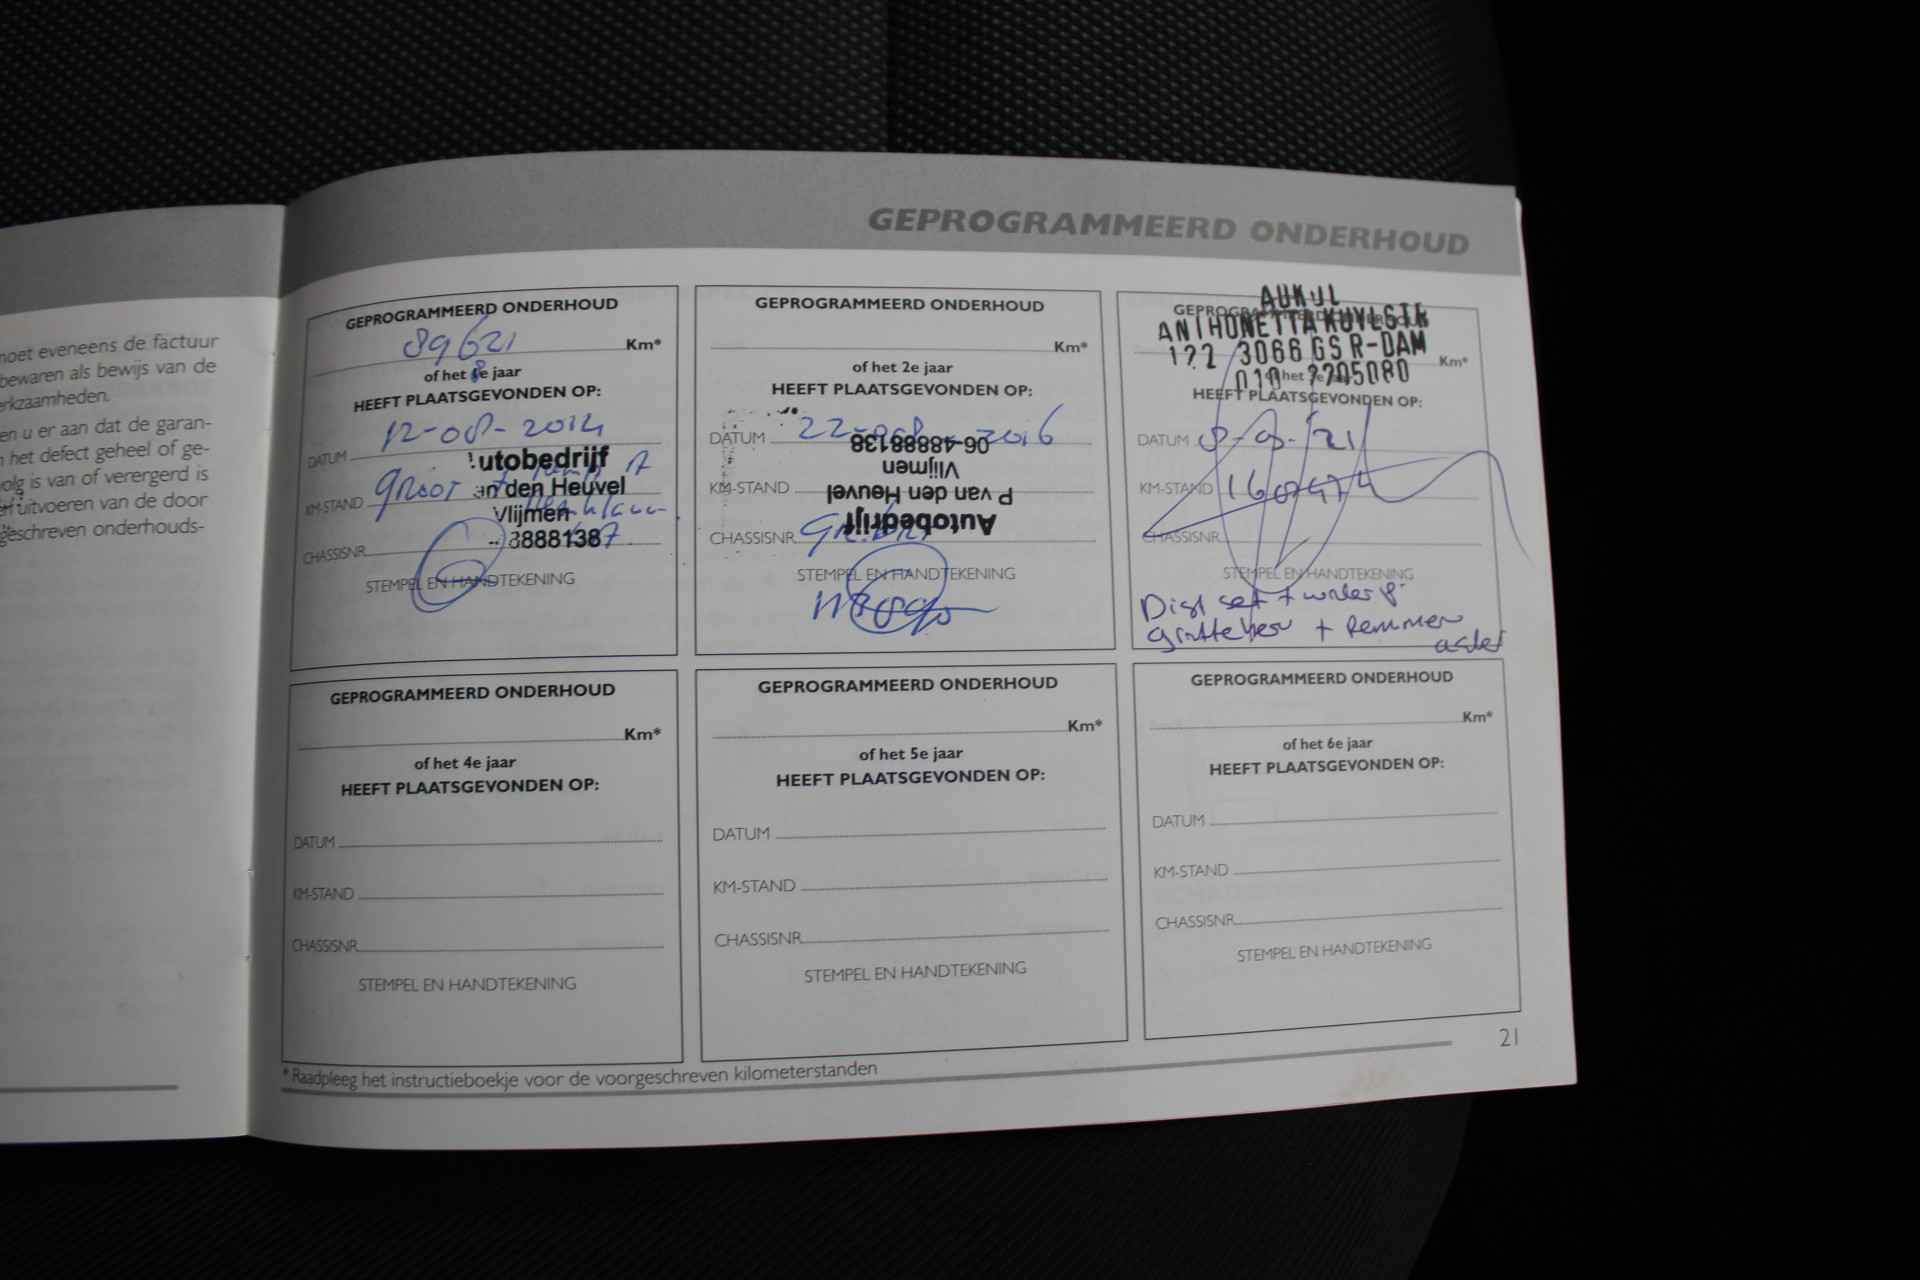 GEPROGRAMMEERD ONDERHOUD
moet eveneens de factuur
bewaren als bewijs van de
erkzaamheden.
en u er aan dat de garan-
n het defect geheel of ge-
volg is van of verergerd is
uitvoeren van de door
geschreven onderhouds-
GEPROGRAMMEERD ONDERHOUD
89621 Km*
of het 1e jaar
HEEFT PLAATSGEVONDEN OP:
DATUM 12-08-2014
utobedrijf
KM-STAND groot
an den Heuvel
Vlijmen
CHASSISNR
8888138
STEMPEL EN HANDTEKENING
GEPROGRAMMEERD ONDERHOUD
Km*
of het 2e jaar
HEEFT PLAATSGEVONDEN OP:
DATUM 22- 2016
06-48888138
Vlijmen
KM-STAND
P van den Heuvel
Autobedrijf
CHASSISNR
STEMPEL EN HANDTEKENING
GEPROGRAMMEERD ONDERHOUD
ANTHONETTA KUYLSTR
122 3066 GS R-DAM
Km*
010
of het 3e jaar
HEEFT PLAATSGEVONDEN OP:
DATUM 8-9-'21
KM-STAND
CHASSISNR
STEMPEL EN HANDTEKENING
Dist set +
+ remmen
achter
GEPROGRAMMEERD ONDERHOUD
Km*
of het 4e jaar
HEEFT PLAATSGEVONDEN OP:
DATUM
KM-STAND
CHASSISNR
STEMPEL EN HANDTEKENING
GEPROGRAMMEERD ONDERHOUD
Km*
of het 5e jaar
HEEFT PLAATSGEVONDEN OP:
DATUM
KM-STAND
CHASSISNR
STEMPEL EN HANDTEKENING
GEPROGRAMMEERD ONDERHOUD
Km*
of het 6e jaar
HEEFT PLAATSGEVONDEN OP:
DATUM
KM-STAND
CHASSISNR
STEMPEL EN HANDTEKENING
* Raadpleeg het instructieboekje voor de voorgeschreven kilometerstanden
21